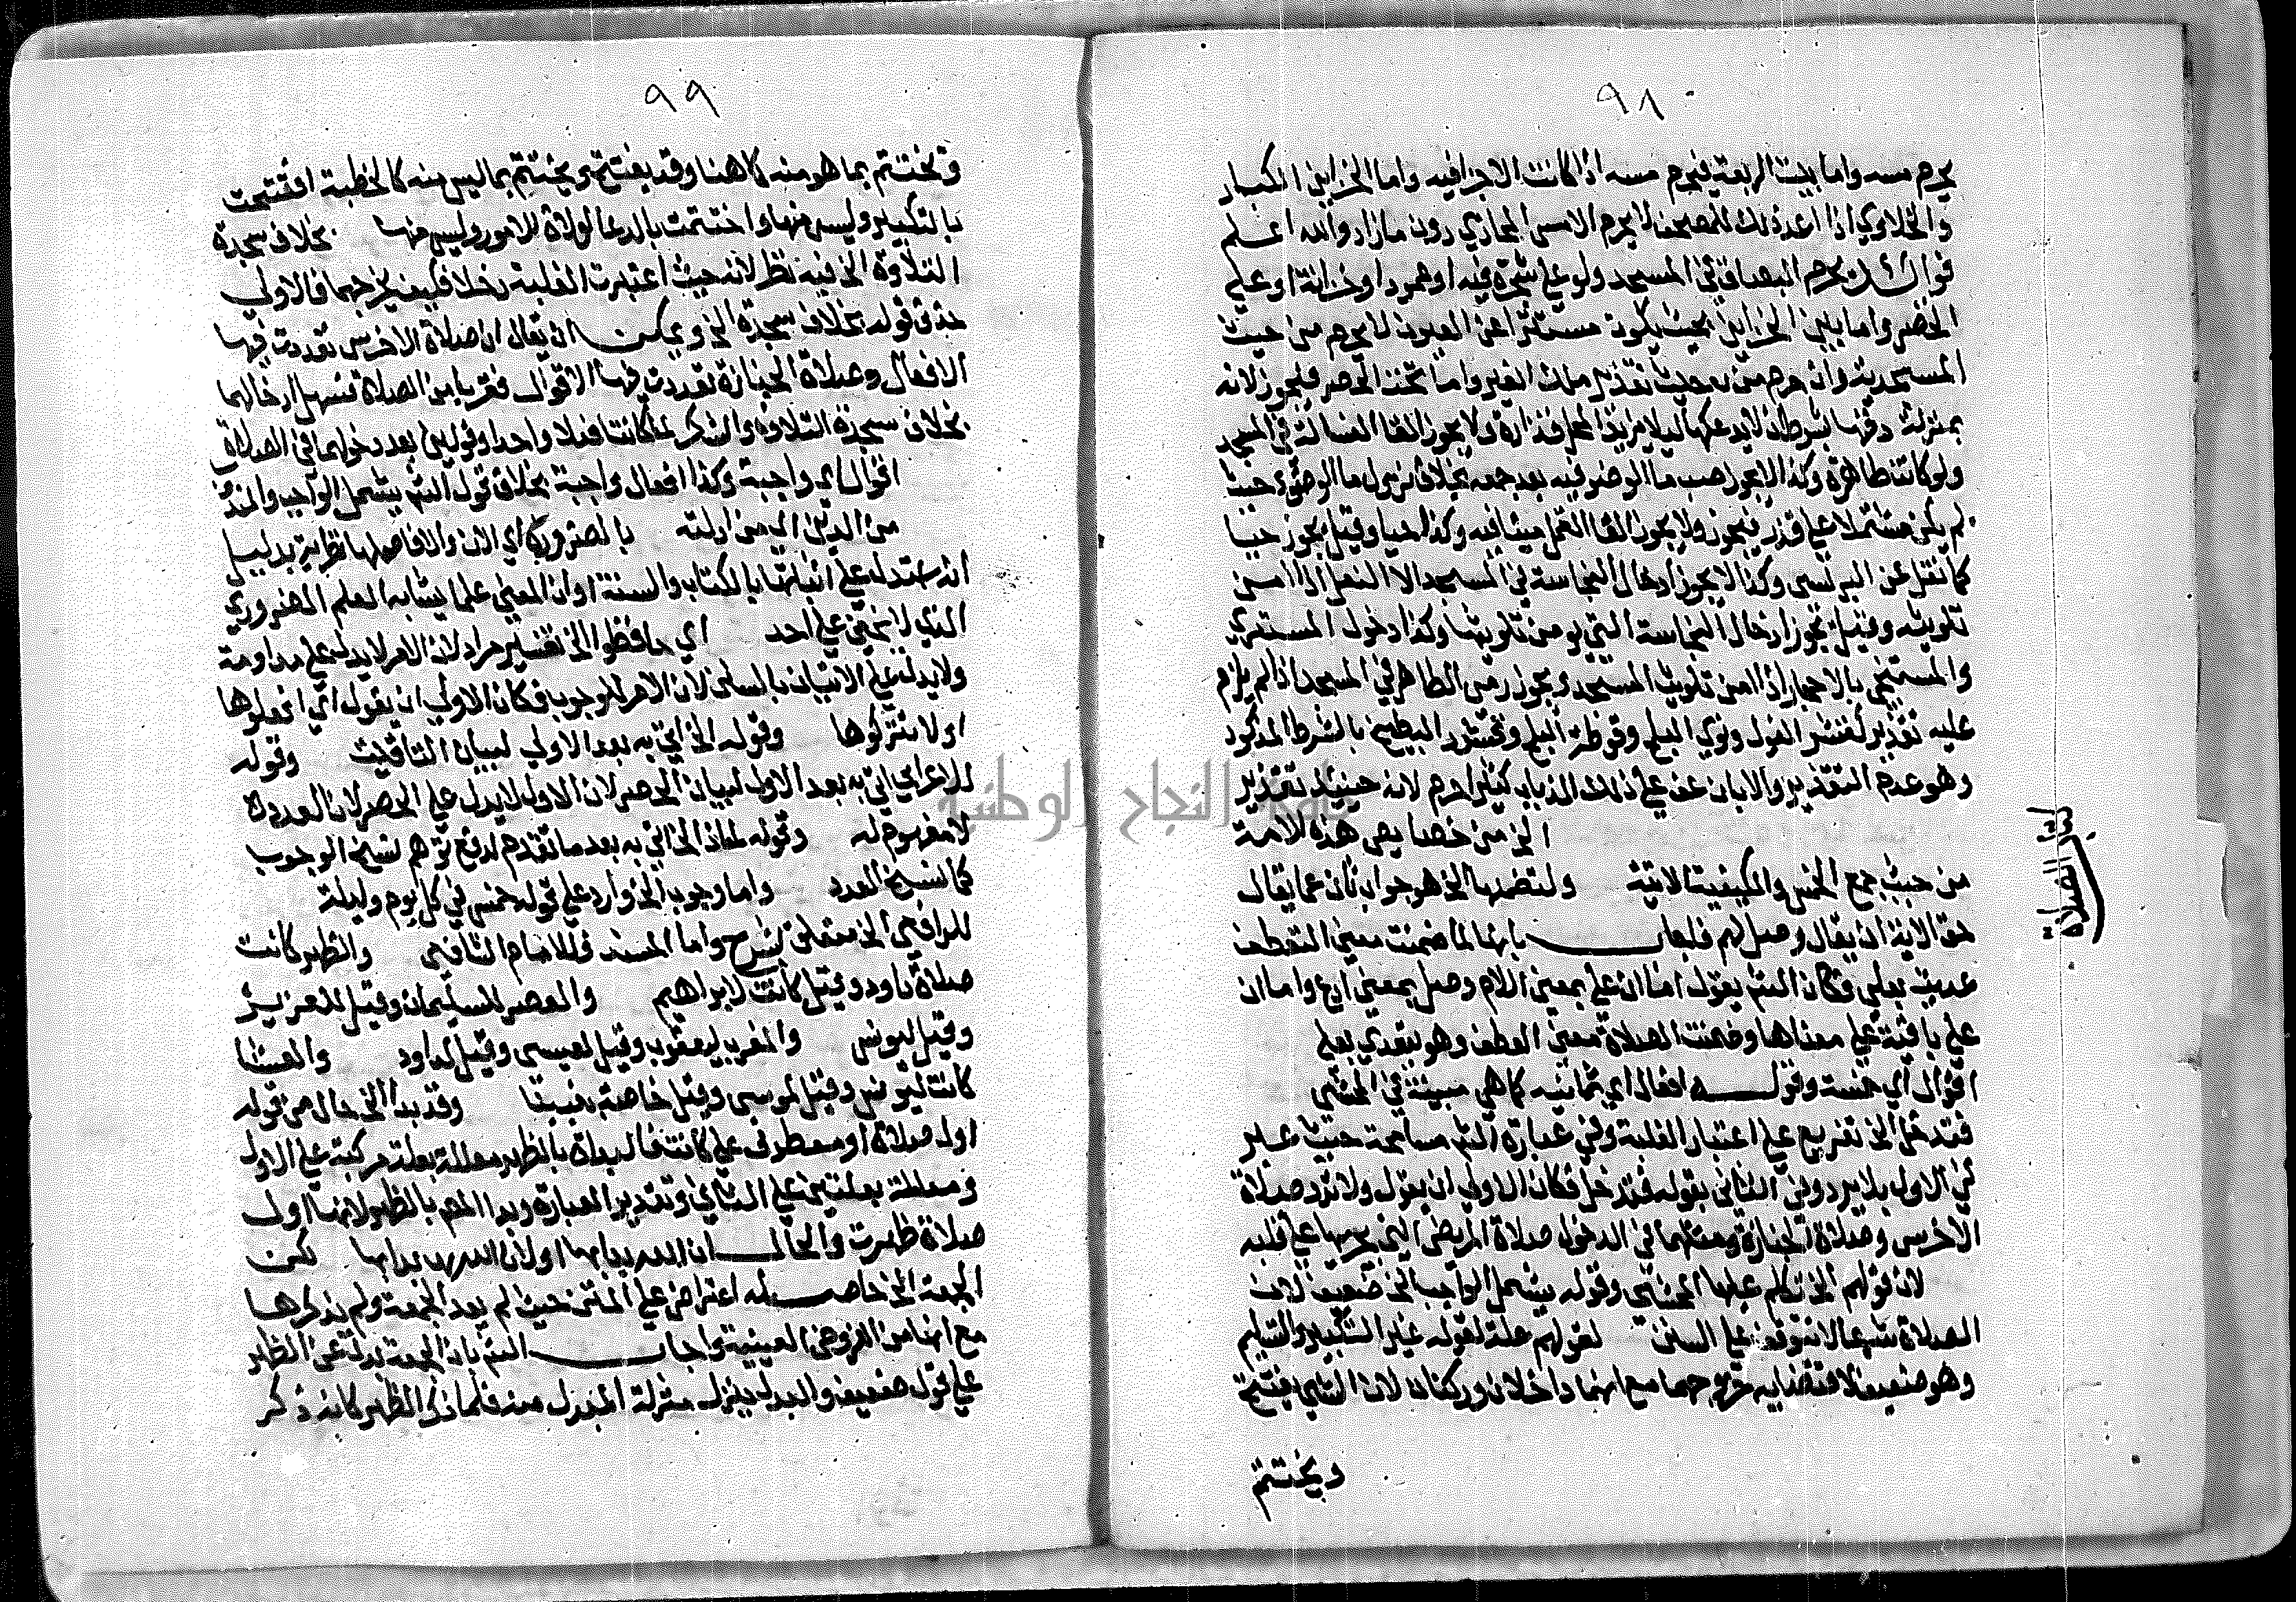 ٩٨
يحرم مسه واما بيت الربعة فيحرم مسه اذا كانت الاجزا فيه واما الخزاين الكبار
والخلاوي اذا اعد ذلك للمصحف لا يحرم الا مس المحاذي دون ما زاد والله اعلم
فوائد يحرم البصاق في المسجد ولو على شجرة فيه او عمود او خزانة او على
الحصر واما بين الخزاين بحيث يكون مستترا عن العيون لا يحرم من حيث
المسجدية وان حرم من حيث تقذير ملك الغير واما تحت الحصر فيجوز لانه
بمنزلة دفنها بشرط ان لا يدعكها ليلا يزيد المحل قذارة ولا يجوز القا الغسالة في المسجد
ولو كانت طاهرة وكذا لا يجوز صب ما الوضو فيه بعد جمعه بخلاف نزول ما الوضوء حيث
لم يكن مشتملا على قذر فيجوز ولا يجوز القا القمل ميتا فيه وكذا حيا وقيل يجوز حيا
كما نقل عن البرلسي وكذا لا يجوز ادخال النجاسة في المسجد الا النعل اذا امن
تلويثه وقيل يجوز ادخال النجاسة التي يومن تلويثها وكذا دخول المستبري
والمستنجي بالاحجار اذا امن تلويث المسجد ويجوز رمي الطاهر في المسجد اذا لم يلزم
عليه تقذير كقشر الفول ونوي البلح وقوطة البلح وقشور البطيخ بالشرط المذكور
وهو عدم التقذير والا بان عف على ذلك الذباب كثيرا حرم لانه حينئذ تقذير
الخ من خصايص هذه الامة
كتاب الصلاة
من حيث جمع الخمس والكيفية الاتية ولتضمنها الخ هو جواب ثان عما يقال
حق الاية ان يقال وصل لهم فاجاب بانها لما ضمنت معنى التعطف
عديت بعلي وكان الشم يقول اما ان على بمعنى اللام وصل بمعنى ادع واما ان
على باقية على معناها وضمنت الصلاة معنى العطف وهو يتعدي بعلى
اقوال اي خمسة وقوله افعال اي ثمانية كما هي مبينة في المحشي
فتدخل الخ تفريع على اعتبار الغلبة وفي عبارة الشم مسامحة حيث عبر
في الاول بلا يرد وفي الثاني بقوله فتدخل فكان الاولي ان يقول ولا ترد صلاة
الاخرس وصلاة الجنازة ومثلهما في الدخول صلاة المريض التي يجريها على قلبه
لان قولهم الخ تكلم عليها المحشي وقوله يشمل الواجب الخ ضعيف لان
الصلاة شرعا لا تتوقف على السنن لقولهم علة لقوله غير التكبير والتسليم
وهو ضعيف لاقتضايه خروجهما مع انهما داخلان وركنان لان الشي يفتتح
ويختتم
٩٩
ويختتم بما هو منه كما هنا وقد يفتتح ويختتم بما ليس منه كالخطبة افتتحت
بالتكبير وليس منها واختتمت بالدعا لولاة الامور وليس منها بخلاف سجدة
التلاوة الخ فيه نظر لانه حيث اعتبرت الغلبة دخلا فكيف يخرجهما فالاولي
حذف قوله بخلاف سجدة الخ ويمكن ان يقال ان صلاة الاخرس تعددت فيها
الافعال وصلاة الجنازة تعددت فيها الاقوال فقربا من الصلاة فسهل ادخالهما
بخلاف سجدة التلاوة والشكر لما كانت فعلا واحدا وقولين بعد دخولهما في الصلاة
اقوال اي واجبة وكذا افعال واجبة بخلاف قول الشم يشمل الواجب والمندوب
من الدين الخ من ادلته بالضرورة اي الان والا فاصلها نظرية بدليل
انه استدل على اثباتها بالكتاب والسنة او ان المعني علما يشابه العلم الضروري
الذي لا يخفى على احد اي حافظوا الخ تفسير مراد لان الامر لا يدل على مداومة
ولا يدل على الاتيان بالسنن لان الامر للوجوب فكان الاولي ان يقول اي افعلوها
اولا تتركوها وقوله الخ اتي به بعد الاولي لبيان التاقيت وقوله
للاعرابي اتي به بعد الاول لبيان الحصر لان الاول لا يدل على الحصر لان العدد
لا مفهوم له وقوله لمعاذ الخ اتي به بعد ما تقدم لدفع توهم نسخ الوجوب
كما نسخ العدد واما وجوب الخ وارد على قوله خمس في كل يوم وليلة
للرافعي الخ متعلق بشرح واما المسند فللامام الشافعي والظهر كانت
صلاة داود وقيل كانت لابراهيم والعصر لسليمان وقيل للعزيز
وقيل ليونس والمغرب ليعقوب وقيل لعيسى وقيل لداود والعشا
كانت ليونس وقيل لموسى وقيل خاصة بنبينا وقد بدا الخ حال من قوله
اول صلاة او معطوف على كانت فالبداة بالظهر معللة بعلة مركبة على الاول
ومعللة بعلتين على الثاني وتقدير العبارة وبدا المص بالظهر لانها اول
صلاة ظهرت والحال ان الله بدا بها او لان الله بدا بها لكن
الجمعة الخ حاصله اعتراض على المتن حيث لم يعد الجمعة ولم يذكرها
مع انها من الفروض العينية واجاب الشم بان الجمعة بدل عن الظهر
على قول ضعيف والبدل ينزل منزلة المبدل منه فلما ذكر الظهر كانه ذكر
جامعة النجاح الوطنية